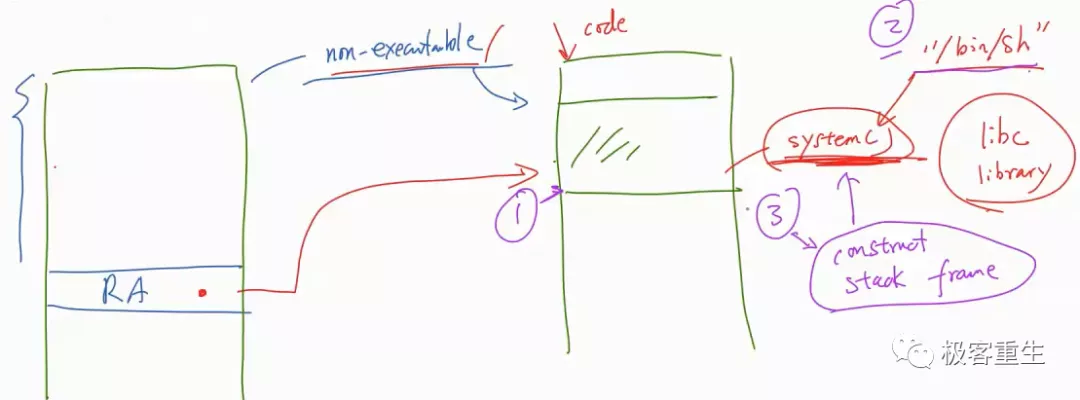 non-executable
code
②
"/bin/sh"
system()
libc
library
①
③
construct
stack frame
RA
极客重生